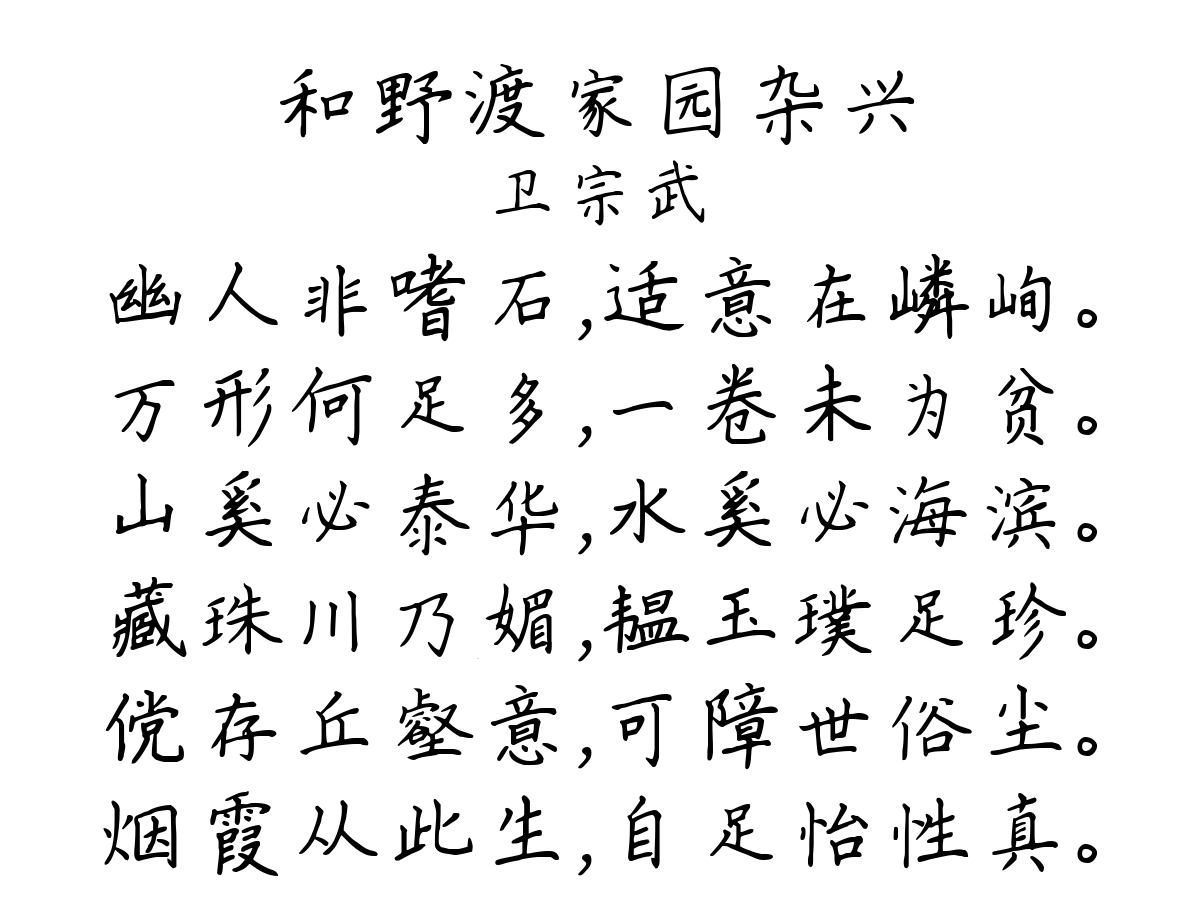 和野渡家园杂兴
卫宗武
幽人非嗜石,适意在嶙峋。
万形何足多,一卷未为贫。
山奚必泰华,水奚必海滨。
藏珠川乃媚,韫玉璞足珍。
傥存丘壑意,可障世俗尘。
烟霞从此生,自足怡性真。